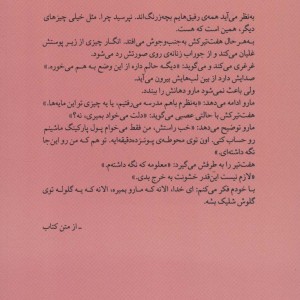 به‌نظر می‌آید همه‌ی رفیق‌هایم بچه‌زرنگ‌اند. نپرسید چرا. مثل خیلی چیزهای
دیگر، همین است که هست.
به‌هرحال هفت‌تیرکش به‌جنب‌وجوش می‌افتد. انگار چیزی از زیر پوستش
غلیان می‌کند و از جوراب زنانه‌ی روی صورتش رد می‌شود.
غرغری می‌کند و می‌گوید: «دیگه حالم داره از این وضع به هم می‌خوره.»
صدایش دارد از بین لب‌هایش بیرون می‌آید.
ولی باعث نمی‌شود مارو دهانش را ببندد.
مارو ادامه می‌دهد: «به‌نظرم باهم مدرسه می‌رفتیم، یا یه چیزی تو این مایه‌ها.»
هفت‌تیرکش با حالتی عصبی می‌گوید: «دلت می‌خواد بمیری، نه؟»
مارو توضیح می‌دهد: «خب راستش، من فقط می‌خوام پول پارکینگ ماشینم
رو حساب کنی. اون توی محوطه‌ی پونزده‌دقیقه‌ایه. تو هم که من رو این‌جا
نگه داشته‌ای.»
هفت‌تیر را به طرفش می‌گیرد: «معلومه که نگه داشته‌م.»
«لازم نیست این‌قدر خشونت به خرج بدی.»
با خودم فکر می‌کنم: ای خدا، الانه که مارو بمیره، الانه که یه گلوله توی
گلوش شلیک بشه.
ـ از متن کتاب